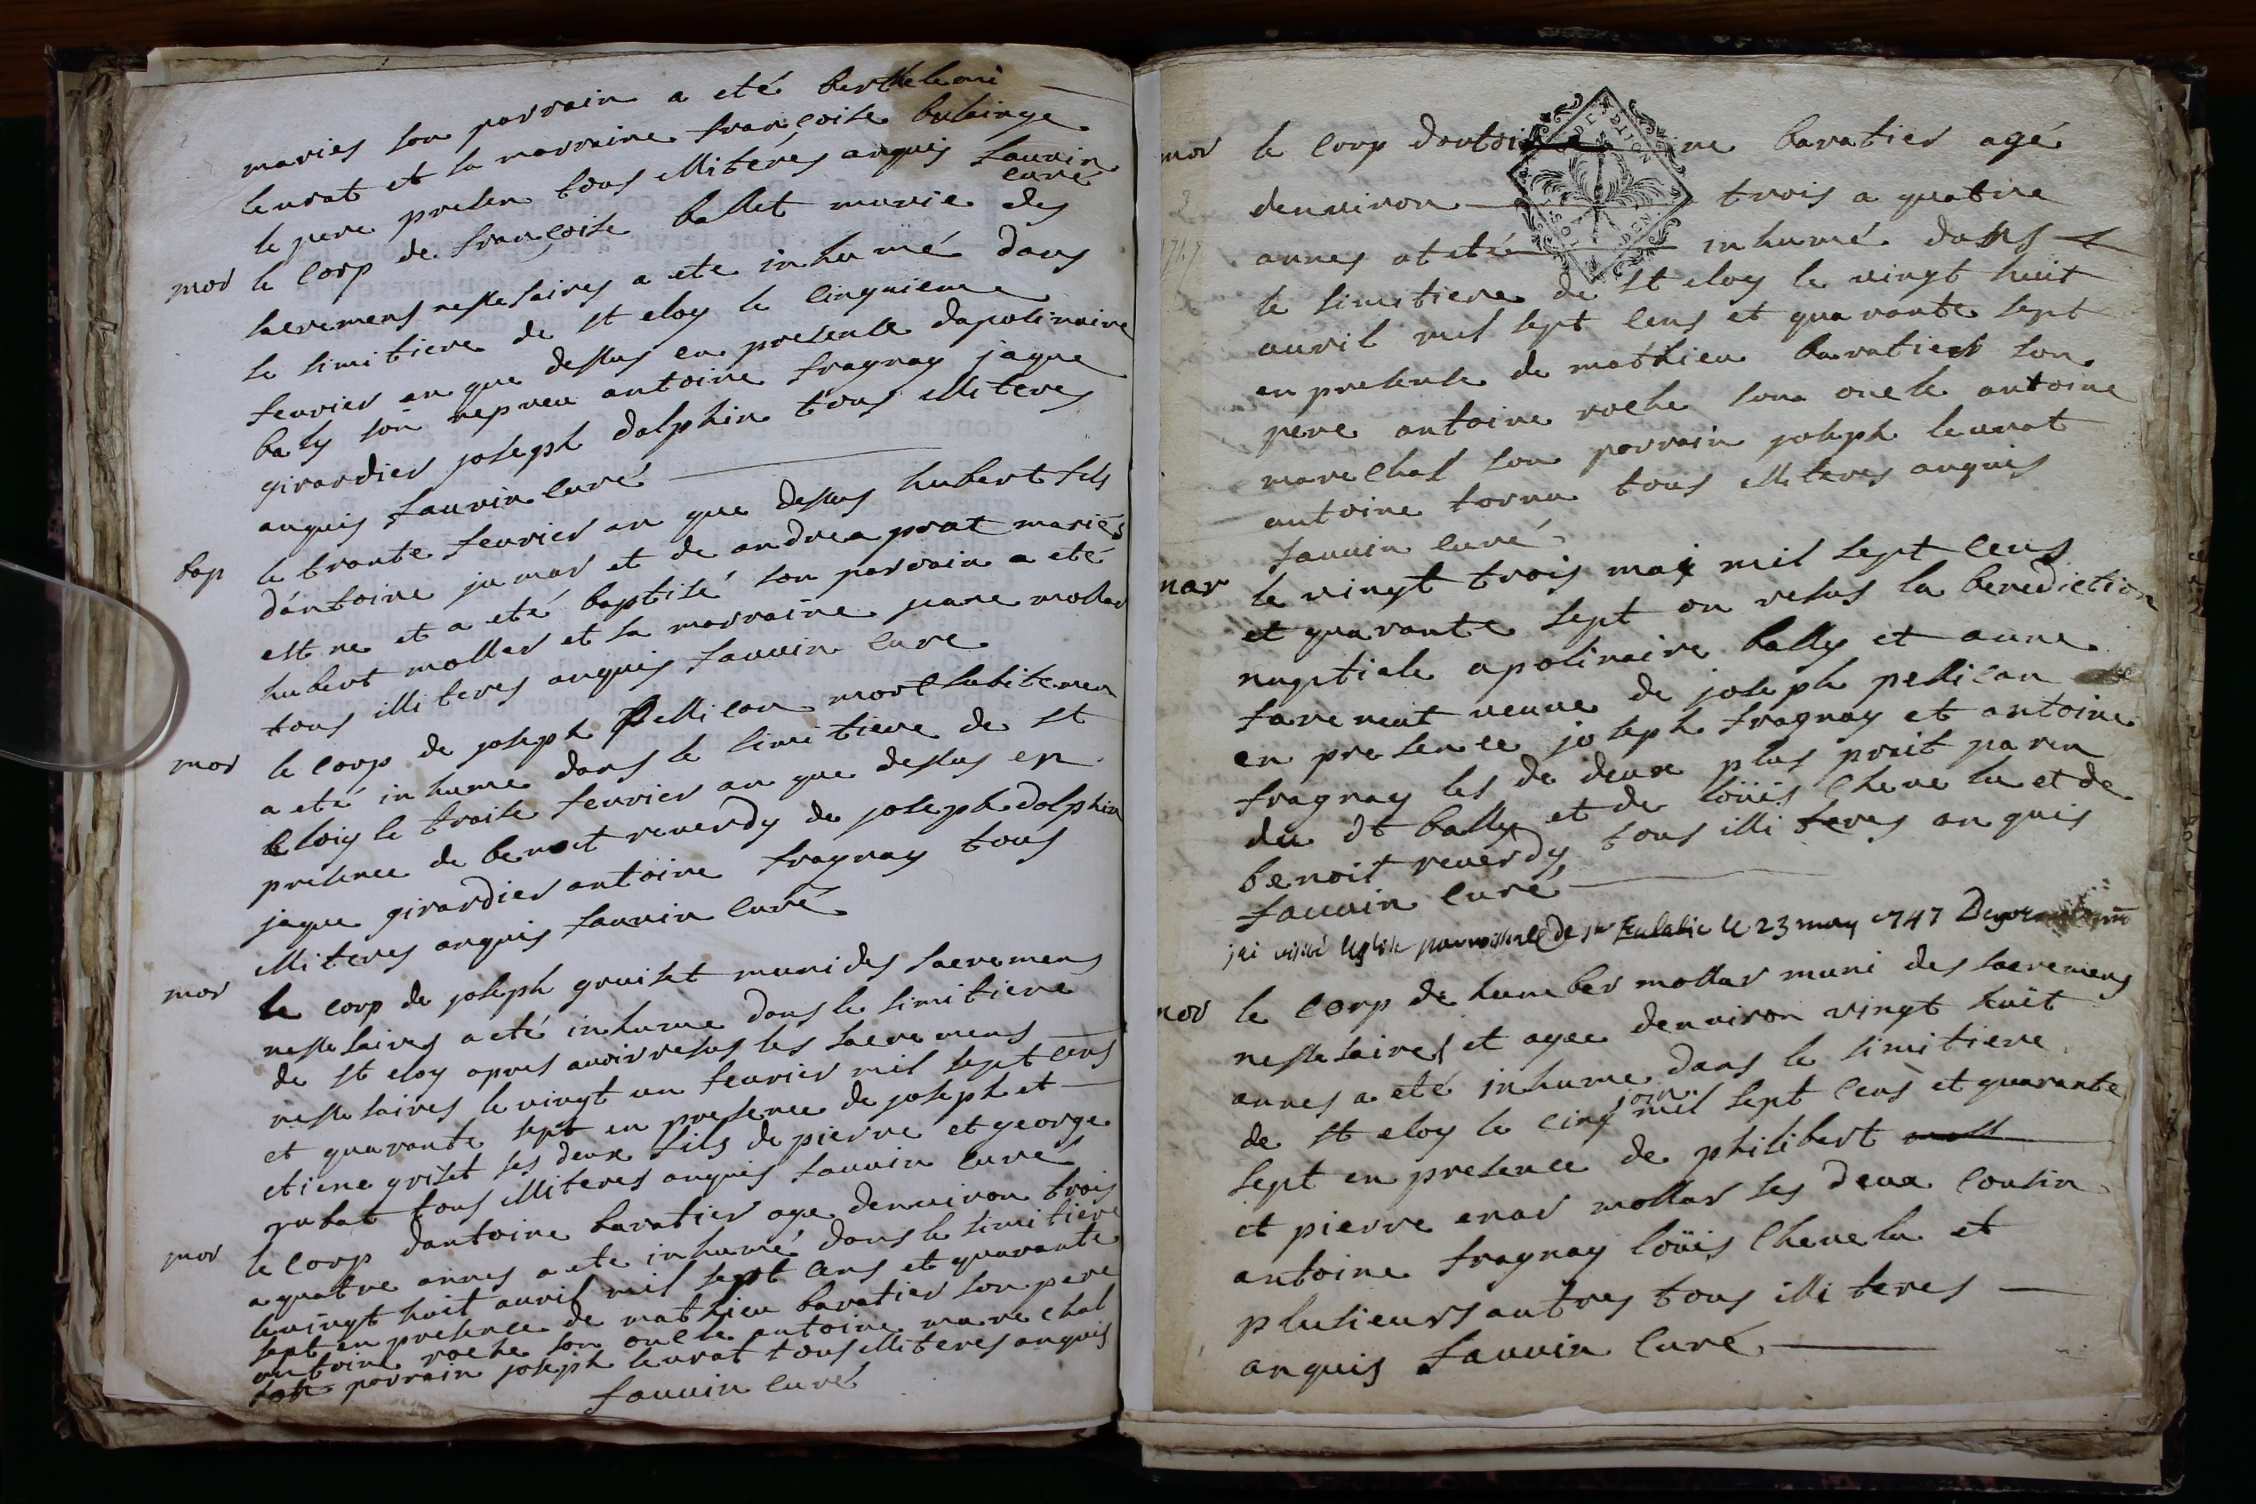 maries son parrain a eté barthelemi
leurat et la marraine françoise belainge
le pere presen tous illiteres anquis fauuin
curé
mor le corp de françoise ballet munie des
sacremens nessesaires a ete inhumé dans
le simitiere de st eloy le cinquieme
feurier an que dessus en presense dapolinaire
baly son nepueu antoine fragnay jaque
girardier joseph dalphin tous illiteres
anquis fauuin curé
bap le trante feurier an que dessus hubert fils
d'antoine jumar et de andrea prat mariés
est ne et a eté baptisé son parrain a eté
hubert mollar et la marraine jeane mollar
tous illiteres anquis fauuin cure
mor le corp de joseph pellican mort subitemen
a eté inhume dans le simitiere de st
eloiy le traise feurier an que dessus en
presence de benoit reuerdy de joseph dolphin
jaque girardier antoine fragnay tous
illiteres anquis fauuin curé
mor le corp de joseph gruiset muni des sacremens
nessesaires a eté inhume dans le simitiere
de st eloy apres auoir resus les sacremens
nessesaires le vingt un feurier mil sept cens
et quarante sept en presence de joseph et
etiene griset ses deux fils de pierre et george
rubat tous illiteres anquis fauuin curé
mor le corp dantoine baratier age denuiron trois
a quatre annes a ete inhumé dans le simitiere
le vingt huit auril mil sept cens et quarante
sept en presence de mathieu baratier son pere
antoine roche son oncle antoine marechal
son parrain joseph leurat tous illiteres anquis
fauuin curé
mor le corp dantoine baratier agé
denuiron trois a quatre
annes at eté inhumé dans
le simitiere de st eloy le vingt huit
auril mil sept cens et quarante sept
en presense de mathieu baratier son
pere antoine roche son oncle antoine
marechal son parrain joseph leurat
antoine tornu tous illiteres anquis
fauuin curé
mar le vingt trois mai mil sept cens
et quarante sept on resus la benediction
nuptiale apolinaire bally et anne
fauement veuue de joseph pellican
en presence joseph fragnay et antoine
fragnay les de deux plus proit paren
du dt bally et de loüis cheuelu et de
benoit reuerdy tous illiteres anquis
fauuin curé
jai visité leglise parroissiale de ste Eulalie le 23 may 1747
mor le corp de humber mollar muni des sacremens
nessesaires et agee denuiron vingt huit
annes a eté inhume dans le simitiere
de st eloy le cinq join mil sept cens et quarante
sept en presence de philibert moll
et pierre enar mollar ses deux cousin
antoine fragnay loüis cheuelu et
plusieurs autres tous illiteres
anquis fauuin curé